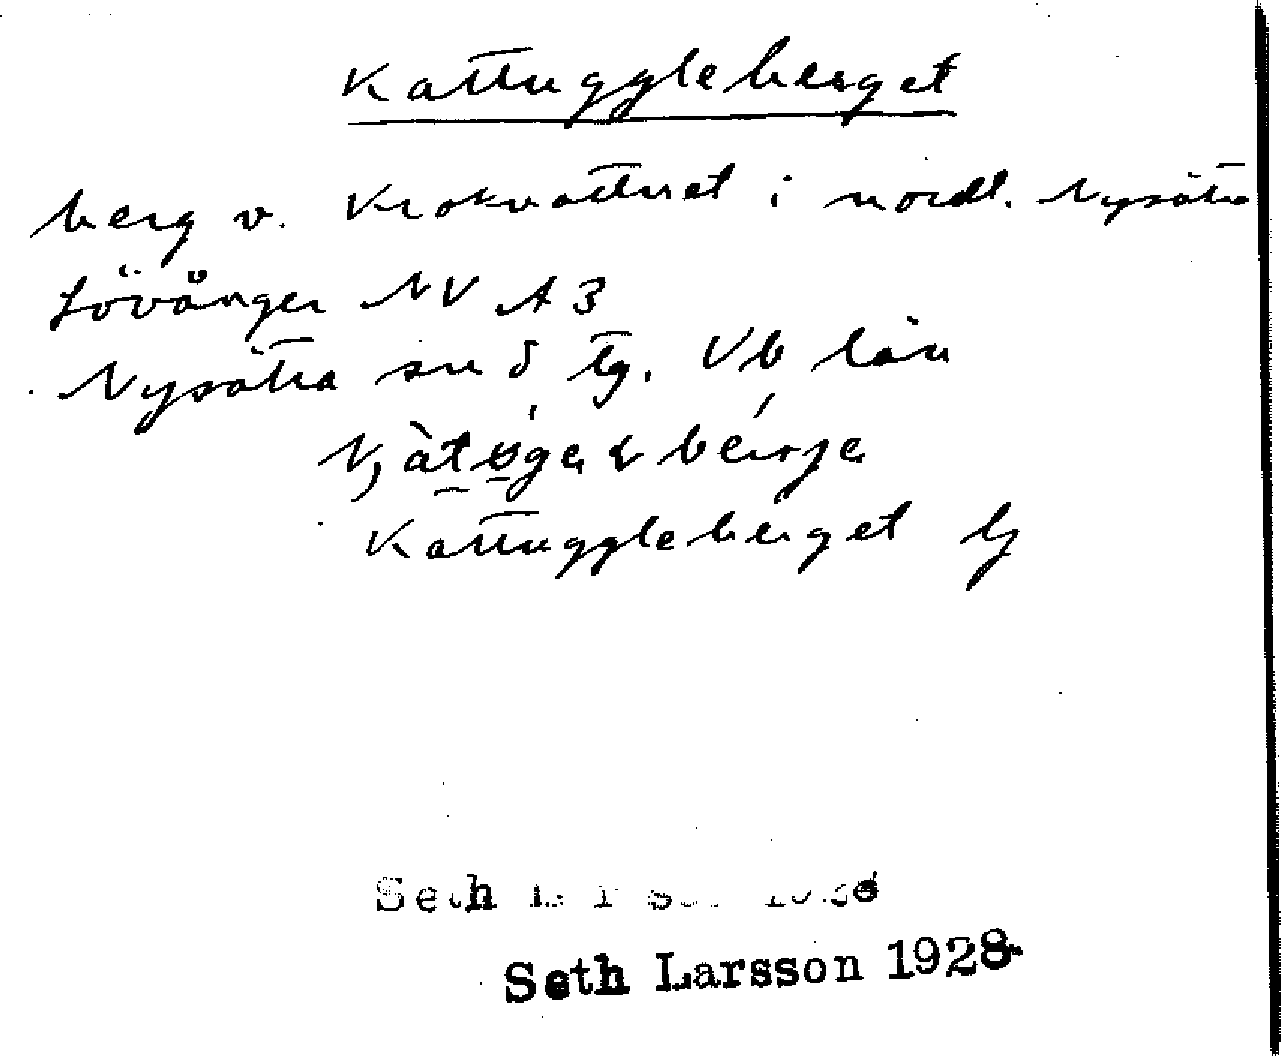 Kattuggleberget
berg v. Krokvattnet i nordl. Nysätra
Lövånger NV A3
Nysätra sn o tg. Vb län
Kattuggleberget
Seth
Seth Larsson 1928